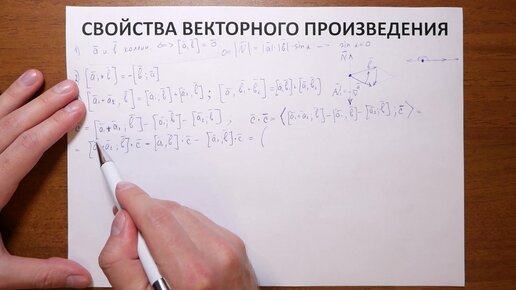 СВОЙСТВА ВЕКТОРНОГО ПРОИЗВЕДЕНИЯ
1) a̅ и b̅ коллин ⇔ [a̅,b̅]=0 0=|N̅|=|a̅|·|b̅|·sin α sin α=0
2) [a̅,b̅]=-[b̅,a̅]
[a̅₁+a̅₂,b̅]=[a̅₁,b̅]+[a̅₂,b̅];
c̅=[a̅₁+a̅₂,b̅]-[a̅₁,b̅]-[a̅₂,b̅]; c̅·c̅=⟨[a̅₁+a̅₂,b̅]-[a̅₁,b̅]-[a̅₂,b̅];c̅⟩=
=[a̅₁+a̅₂,b̅]·c̅-[a̅₁,b̅]·c̅-[a̅₂,b̅]·c̅=(